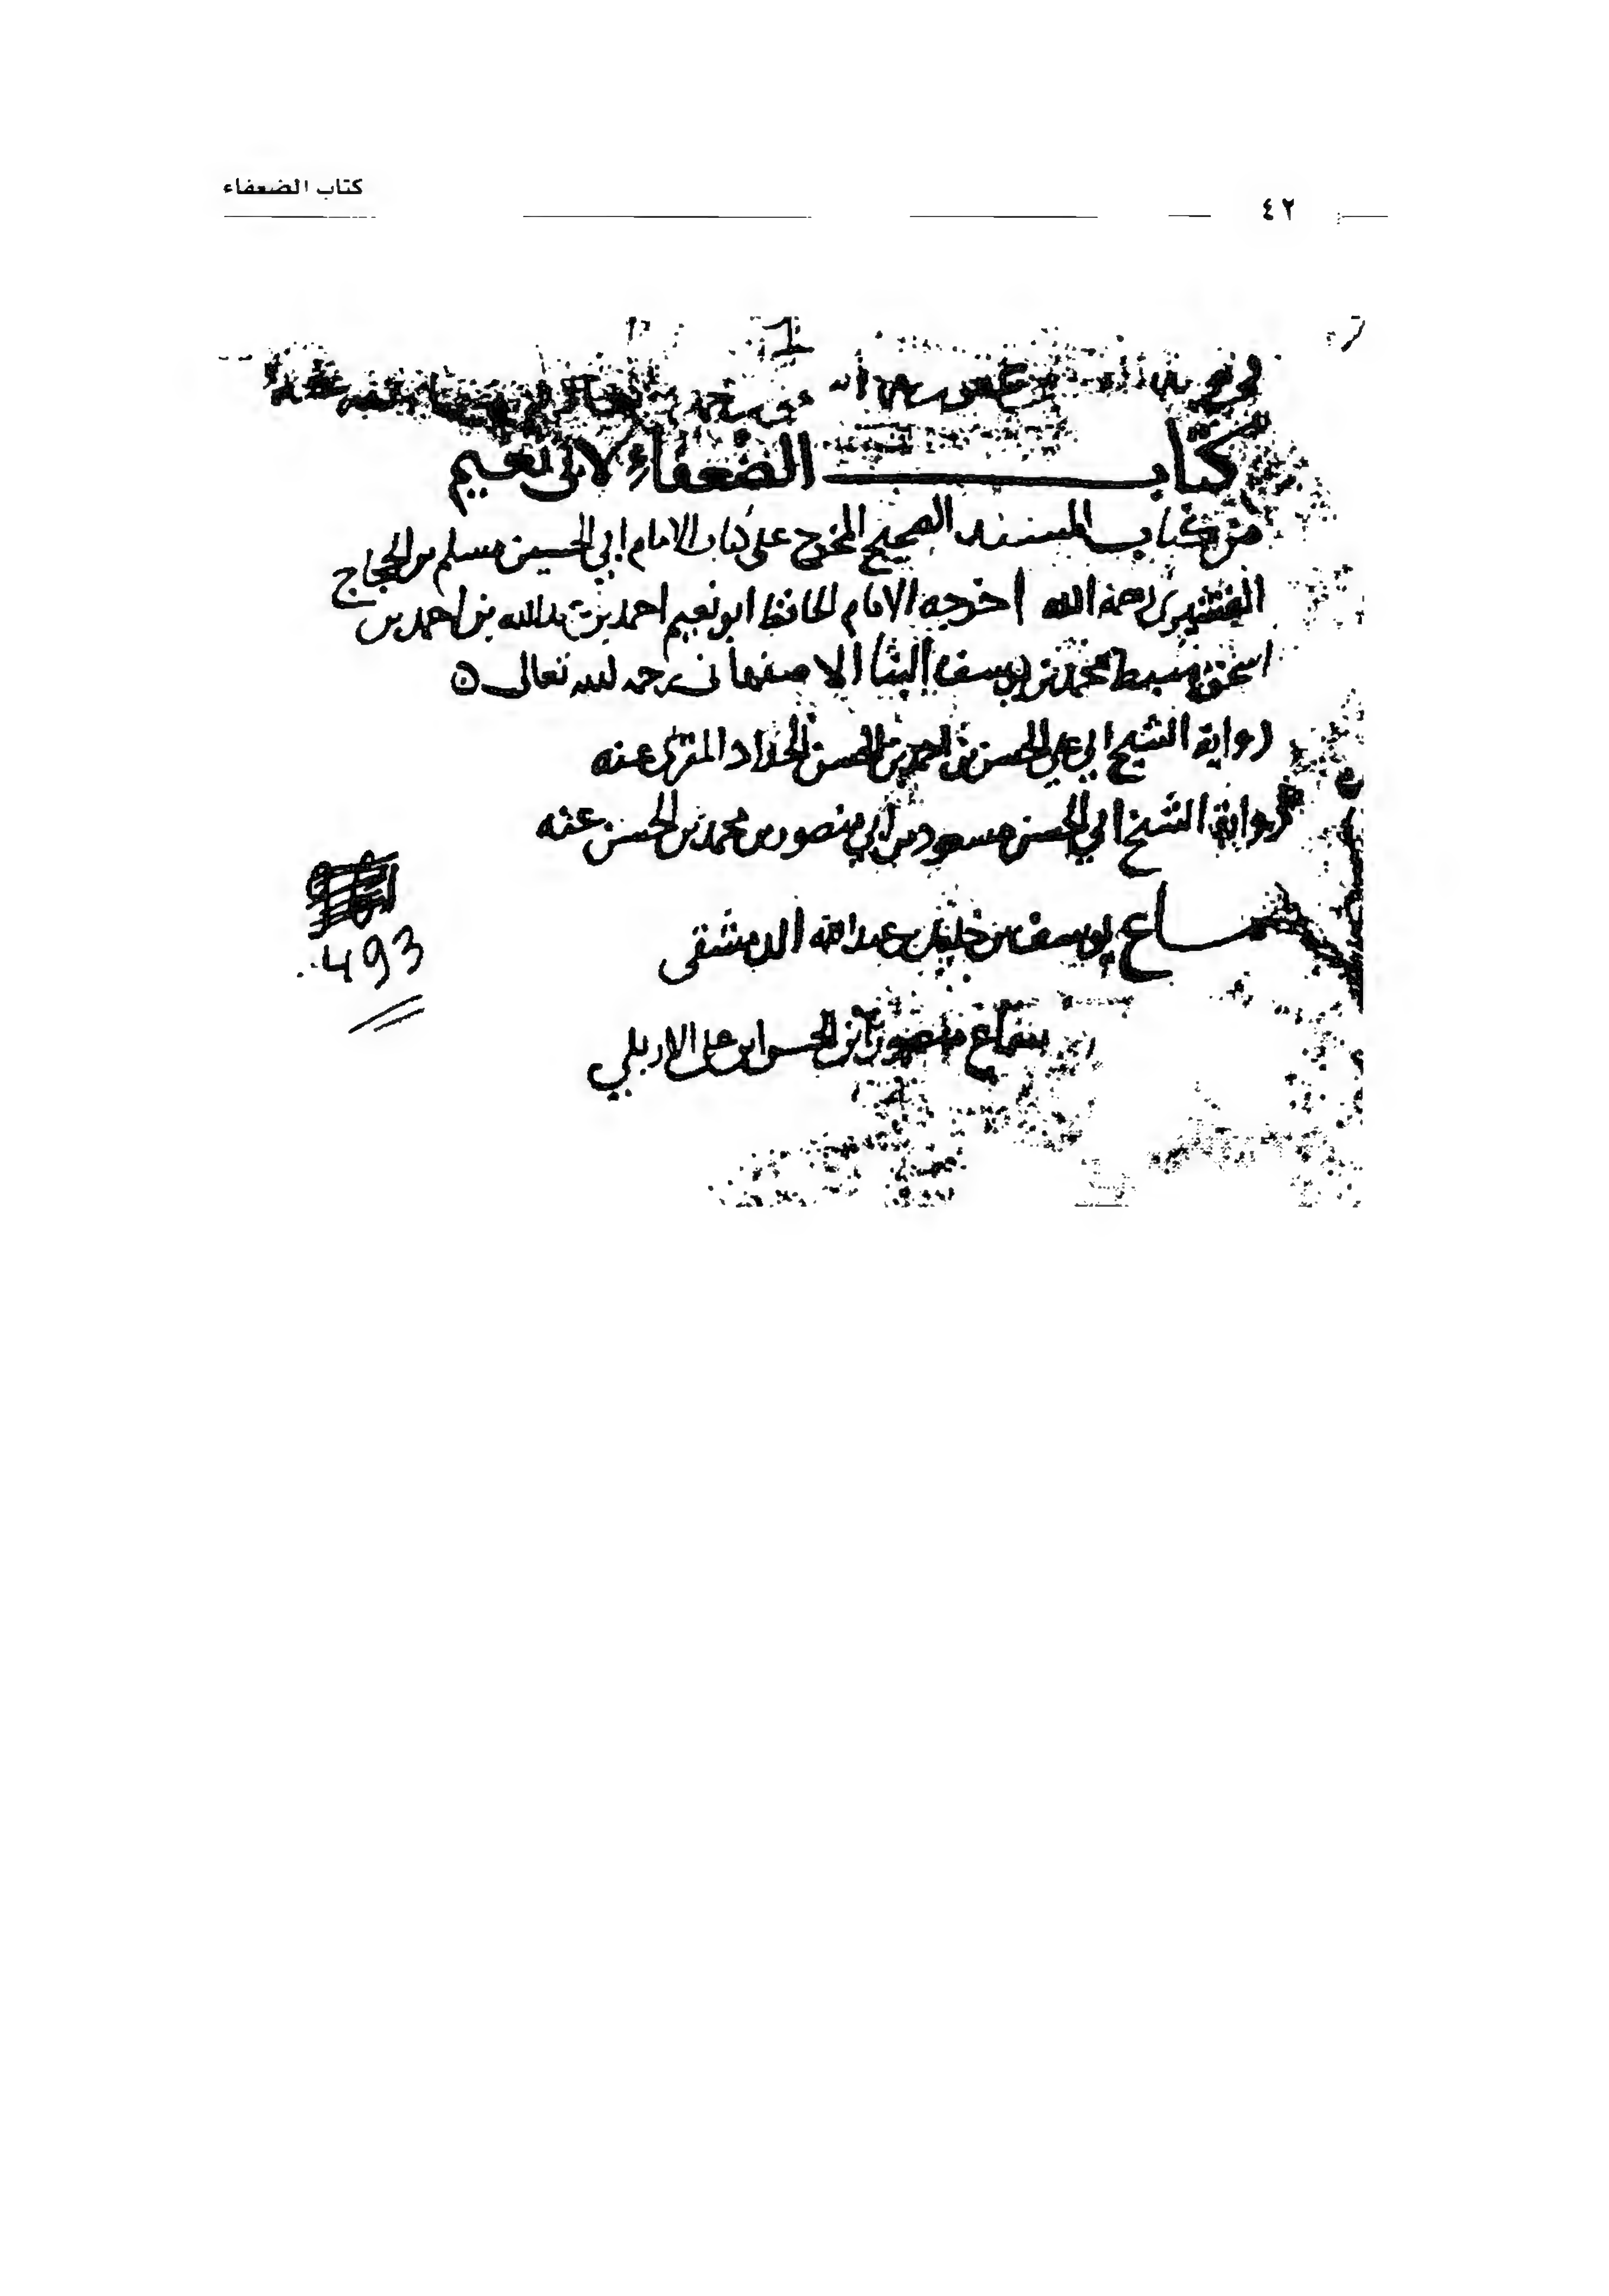 كتاب الضعفاء
٤٢
كتاب الضعفاء لابى نعيم
من كتاب المسند الصحيح المخرج على كتاب الامام ابي الحسين مسلم بن الحجاج
القشيرى رحمة الله اخرجه الامام الحافظ ابو نعيم احمد بن عبدالله بن احمد بن
اسحق سبط محمد بن يوسف البنا الاصفهانى رحمه الله تعالى ه
رواية الشيخ ابي علي الحسن بن احمد بن الحسن الحداد المقرى عنه
رواية الشيخ ابي الحسن مسعود بن ابي منصور بن محمد بن الحسن عنه
سماع يوسف بن خليل بن عبدالله الدمشقى
493
سماع منصور بن الحسن ابن على الاربلي